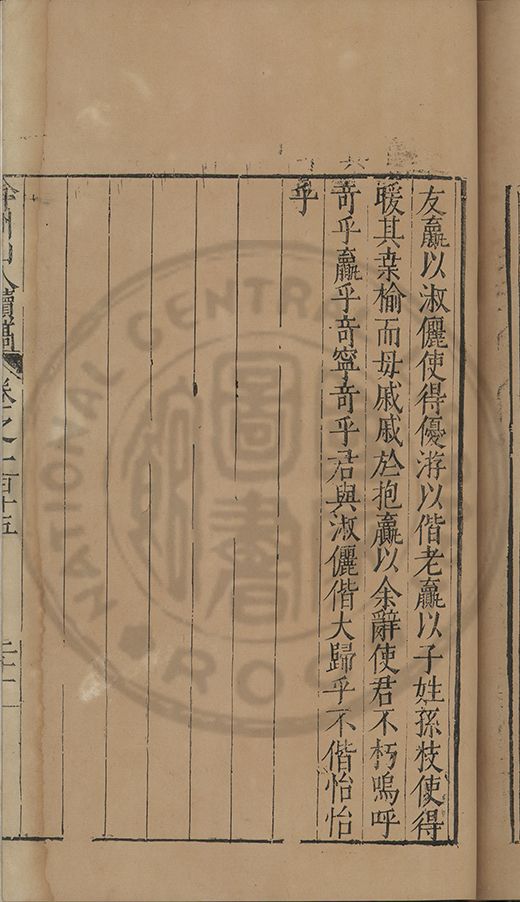 友贏以淑儷使得優游以偕老贏以子姓孫枝使得
暖其桒榆而毋戚戚於抱贏以余辭使君不朽嗚呼
竒乎贏乎竒寧竒乎君與淑儷偕大歸乎不偕怡怡
乎
州山人續稿
卷之一百十五
圖書
CENTRA